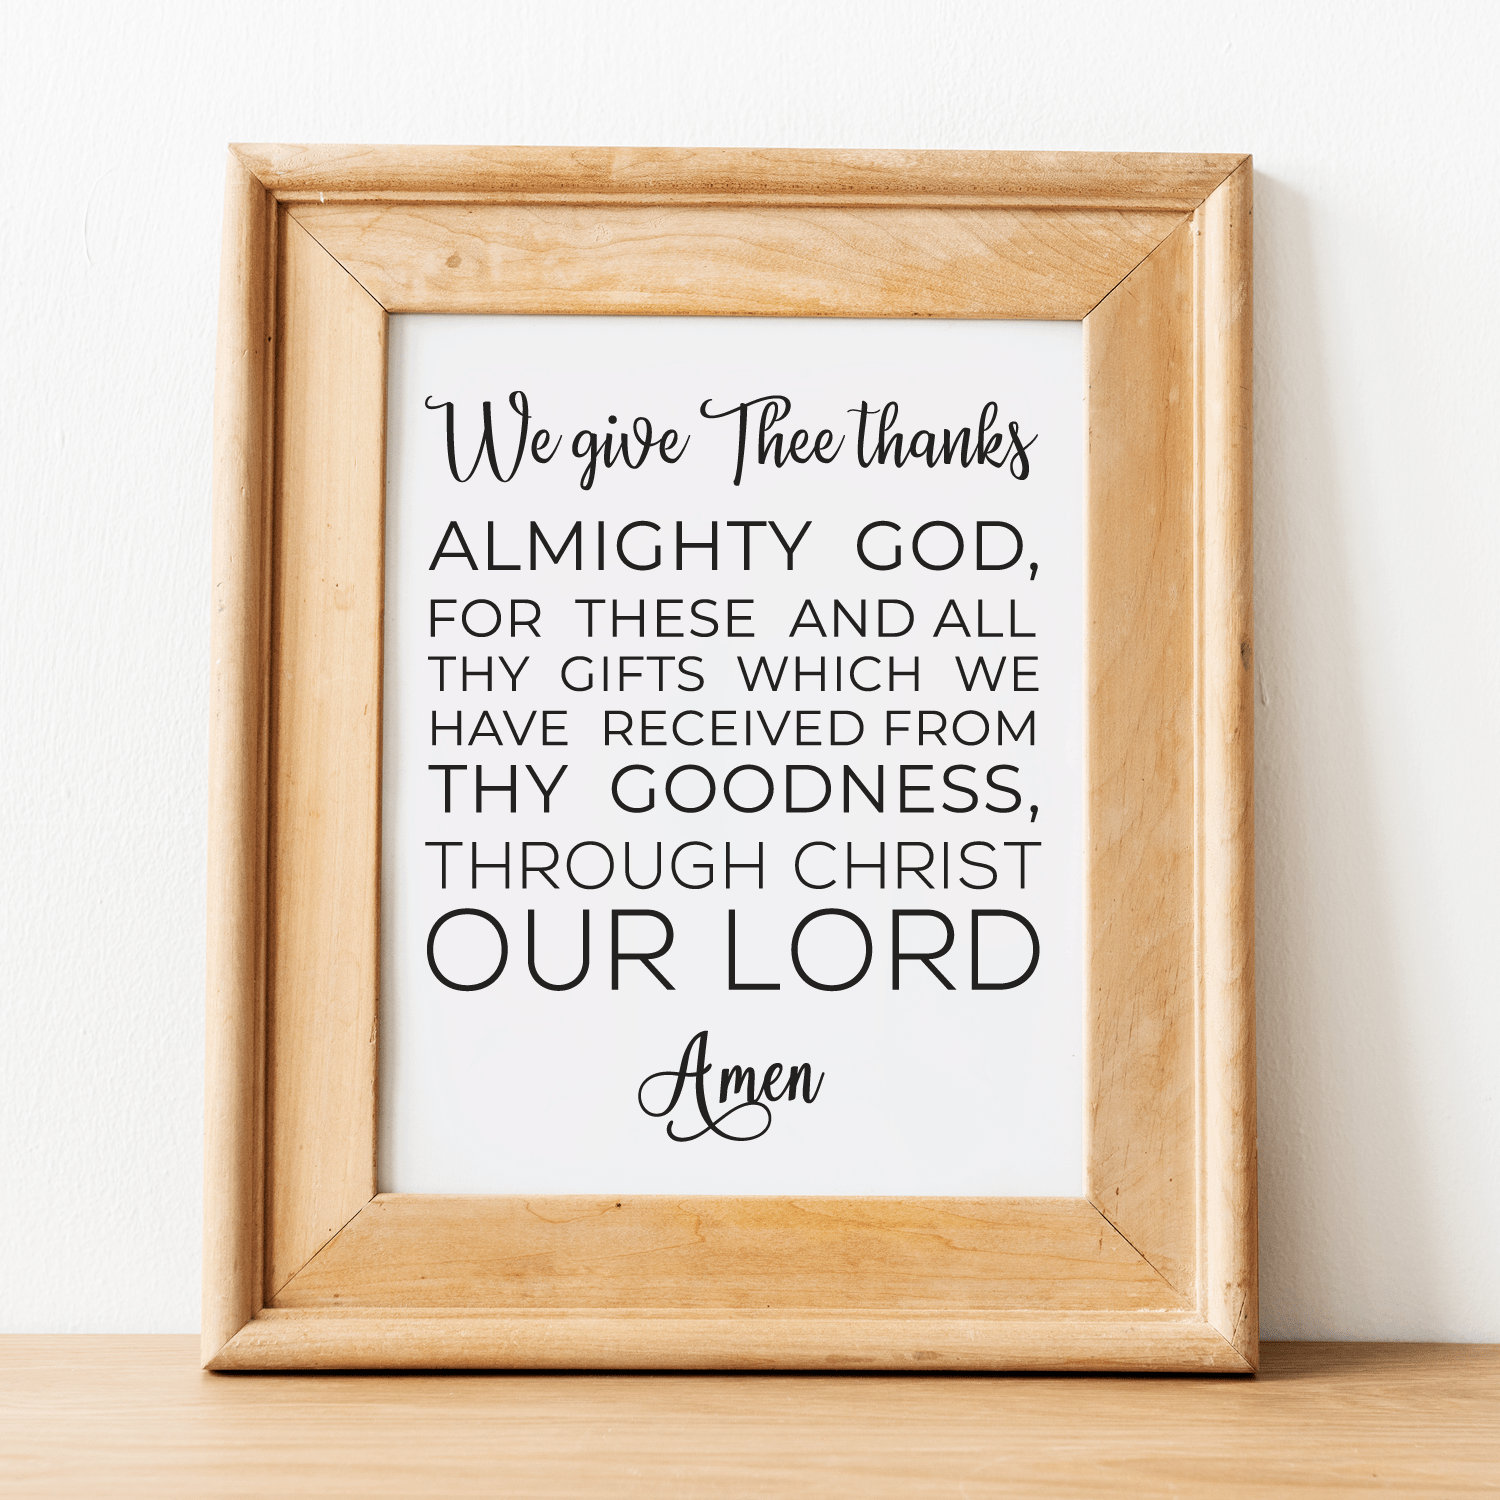 We give Thee thanks
ALMIGHTY GOD,
FOR THESE AND ALL
THY GIFTS WHICH WE
HAVE RECEIVED FROM
THY GOODNESS,
THROUGH CHRIST
OUR LORD
Amen